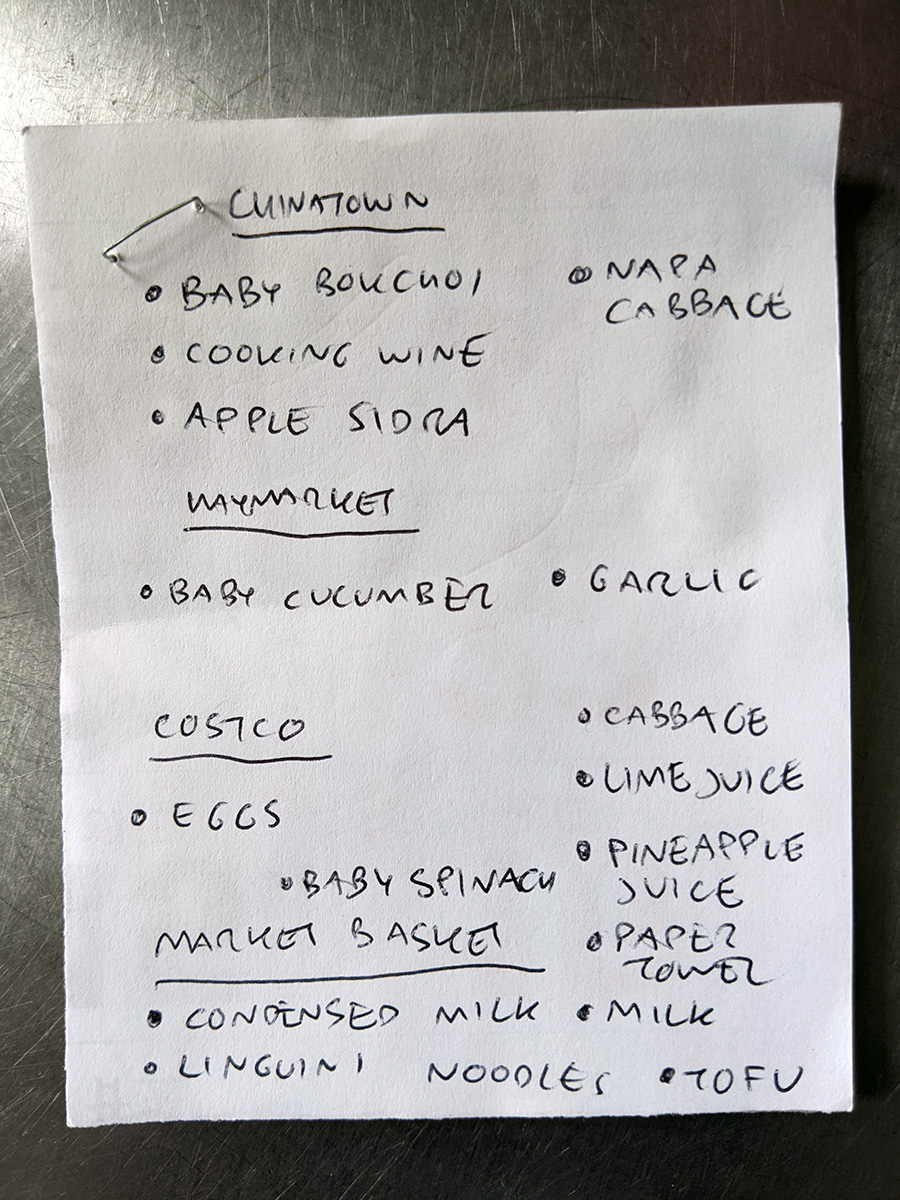 CHINATOWN
• BABY BOKCHOI
• COOKING WINE
• APPLE SIDRA
• NAPA
CABBAGE
HAYMARKET
• BABY CUCUMBER
• GARLIC
COSTCO
• EGGS
• BABY SPINACH
MARKET BASKET
• CONDENSED MILK
• LINGUINI NOODLES
• CABBAGE
• LIME JUICE
• PINEAPPLE
JUICE
• PAPER
TOWEL
• MILK
• TOFU